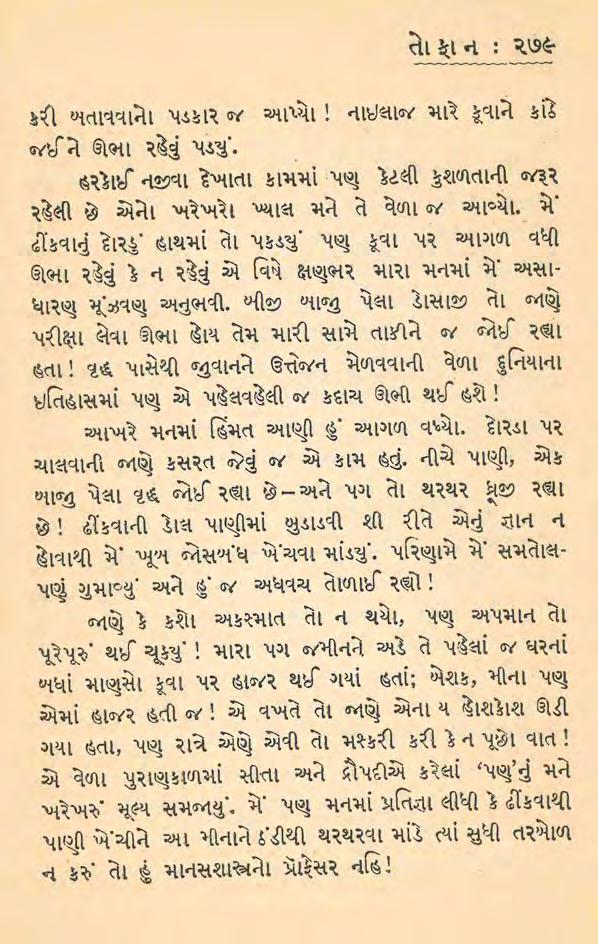 તોફાન : ૨૭૯
કરી બતાવવાનો પડકાર જ આપ્યો ! નાઇલાજ મારે કૂવાને કાંઠે
જઈ ને ઊભા રહેવું પડયું.
હરકોઈ નજીવા દેખાતા કામમાં પણ કેટલી કુશળતાની જરૂર
રહેલી છે એનો ખરેખરો ખ્યાલ મને તે વેળા જ આવ્યો. મેં
ઢીંકવાનું દોરડું હાથમાં તો પકડયું પણ કૂવા પર આગળ વધી
ઊભા રહેવું કે ન રહેવું એ વિષે ક્ષણભર મારા મનમાં મેં અસા-
ધારણ મૂંઝવણ અનુભવી. બીજી બાજુ પેલા ડોસાજી તો જાણે
પરીક્ષા લેવા ઊભા હોય તેમ મારી સામે તાકીને જ જોઈ રહ્યા
હતા ! વૃદ્ધ પાસેથી જુવાનને ઉત્તેજન મેળવવાની વેળા દુનિયાના
ઇતિહાસમાં પણ એ પહેલવહેલી જ કદાચ ઊભી થઈ હશે !
આખરે મનમાં હિંમત આણી હું આગળ વધ્યો. દોરડા પર
ચાલવાની જાણે કસરત જેવું જ એ કામ હતું. નીચે પાણી, એક
બાજુ પેલા વૃદ્ધ જોઈ રહ્યા છે – અને પગ તો થરથર ધ્રૂજી રહ્યા
છે ! ઢીંકવાની ડોલ પાણીમાં બુડાડવી શી રીતે એનું જ્ઞાન ન
હોવાથી મેં ખૂબ જોસબંધ ખેંચવા માંડયું. પરિણામે મેં સમતોલ-
પણું ગુમાવ્યું અને હું જ અધવચ તોળાઈ રહ્યો !
જાણે કે કશો અકસ્માત તો ન થયો, પણ અપમાન તો
પૂરેપૂરું થઈ ચૂકયું ! મારા પગ જમીનને અડે તે પહેલાં જ ઘરનાં
બધાં માણસો કૂવા પર હાજર થઈ ગયાં હતાં; બેશક, મીના પણ
એમાં હાજર હતી જ ! એ વખતે તો જાણે એના ય હોશકોશ ઊડી
ગયા હતા, પણ રાત્રે એણે એવી તો મશ્કરી કરી કે ન પૂછો વાત !
એ વેળા પુરાણકાળમાં સીતા અને દ્રૌપદીએ કરેલાં ‘પણ’નું મને
ખરેખરું મૂલ્ય સમજાયું. મેં પણ મનમાં પ્રતિજ્ઞા લીધી કે ઢીંકવાથી
પાણી ખેંચીને આ મીનાને ઠંડીથી થરથરવા માંડે ત્યાં સુધી તરબોળ
ન કરું તો હું માનસશાસ્ત્રનો પ્રૉફેસર નહિ !